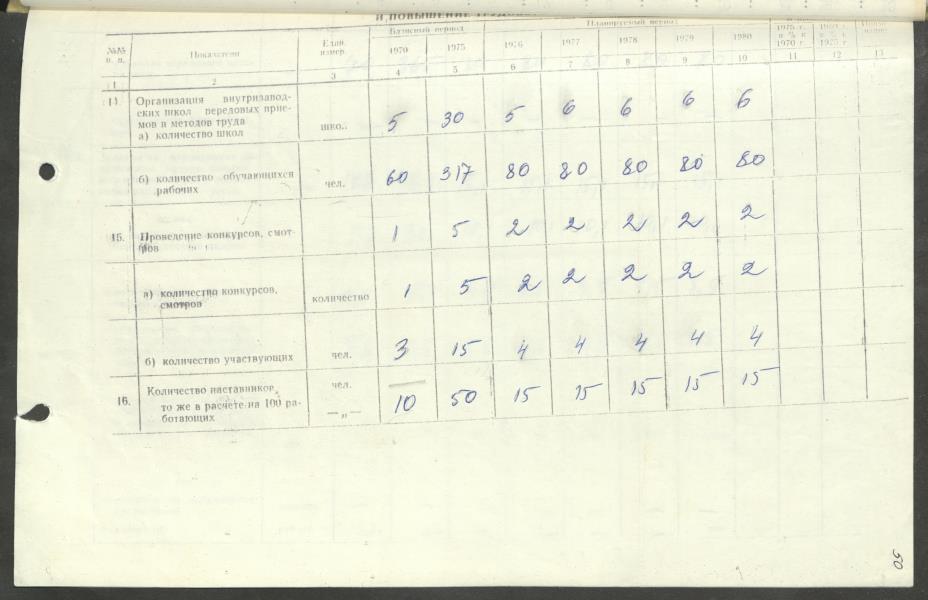 И ПОВЫШЕНИЕ
№№ п. п. Показатели Един. измер. Базисный период Планируемый период
1970 1975 1976 1977 1978 1979 1980 1975 г. в % к 1970 г. 1980 г. в % к 1975 г.
1 2 3 4 5 6 7 8 9 10 11 12 13
Организация внутризавод-
ских школ передовых прие-
мов и методов труда
а) количество школ школ. 5 30 5 6 6 6 6
б) количество обучающихся
рабочих чел. 60 317 80 80 80 80 80
15. Проведение конкурсов, смот-
ров 1 5 2 2 2 2 2
а) количество конкурсов,
смотров количество 1 5 2 2 2 2 2
б) количество участвующих чел. 3 15 4 4 4 4 4
16. Количество наставников, чел. —
то же в расчете на 100 ра-
ботающих —„— 10 50 15 15 15 15 15
50